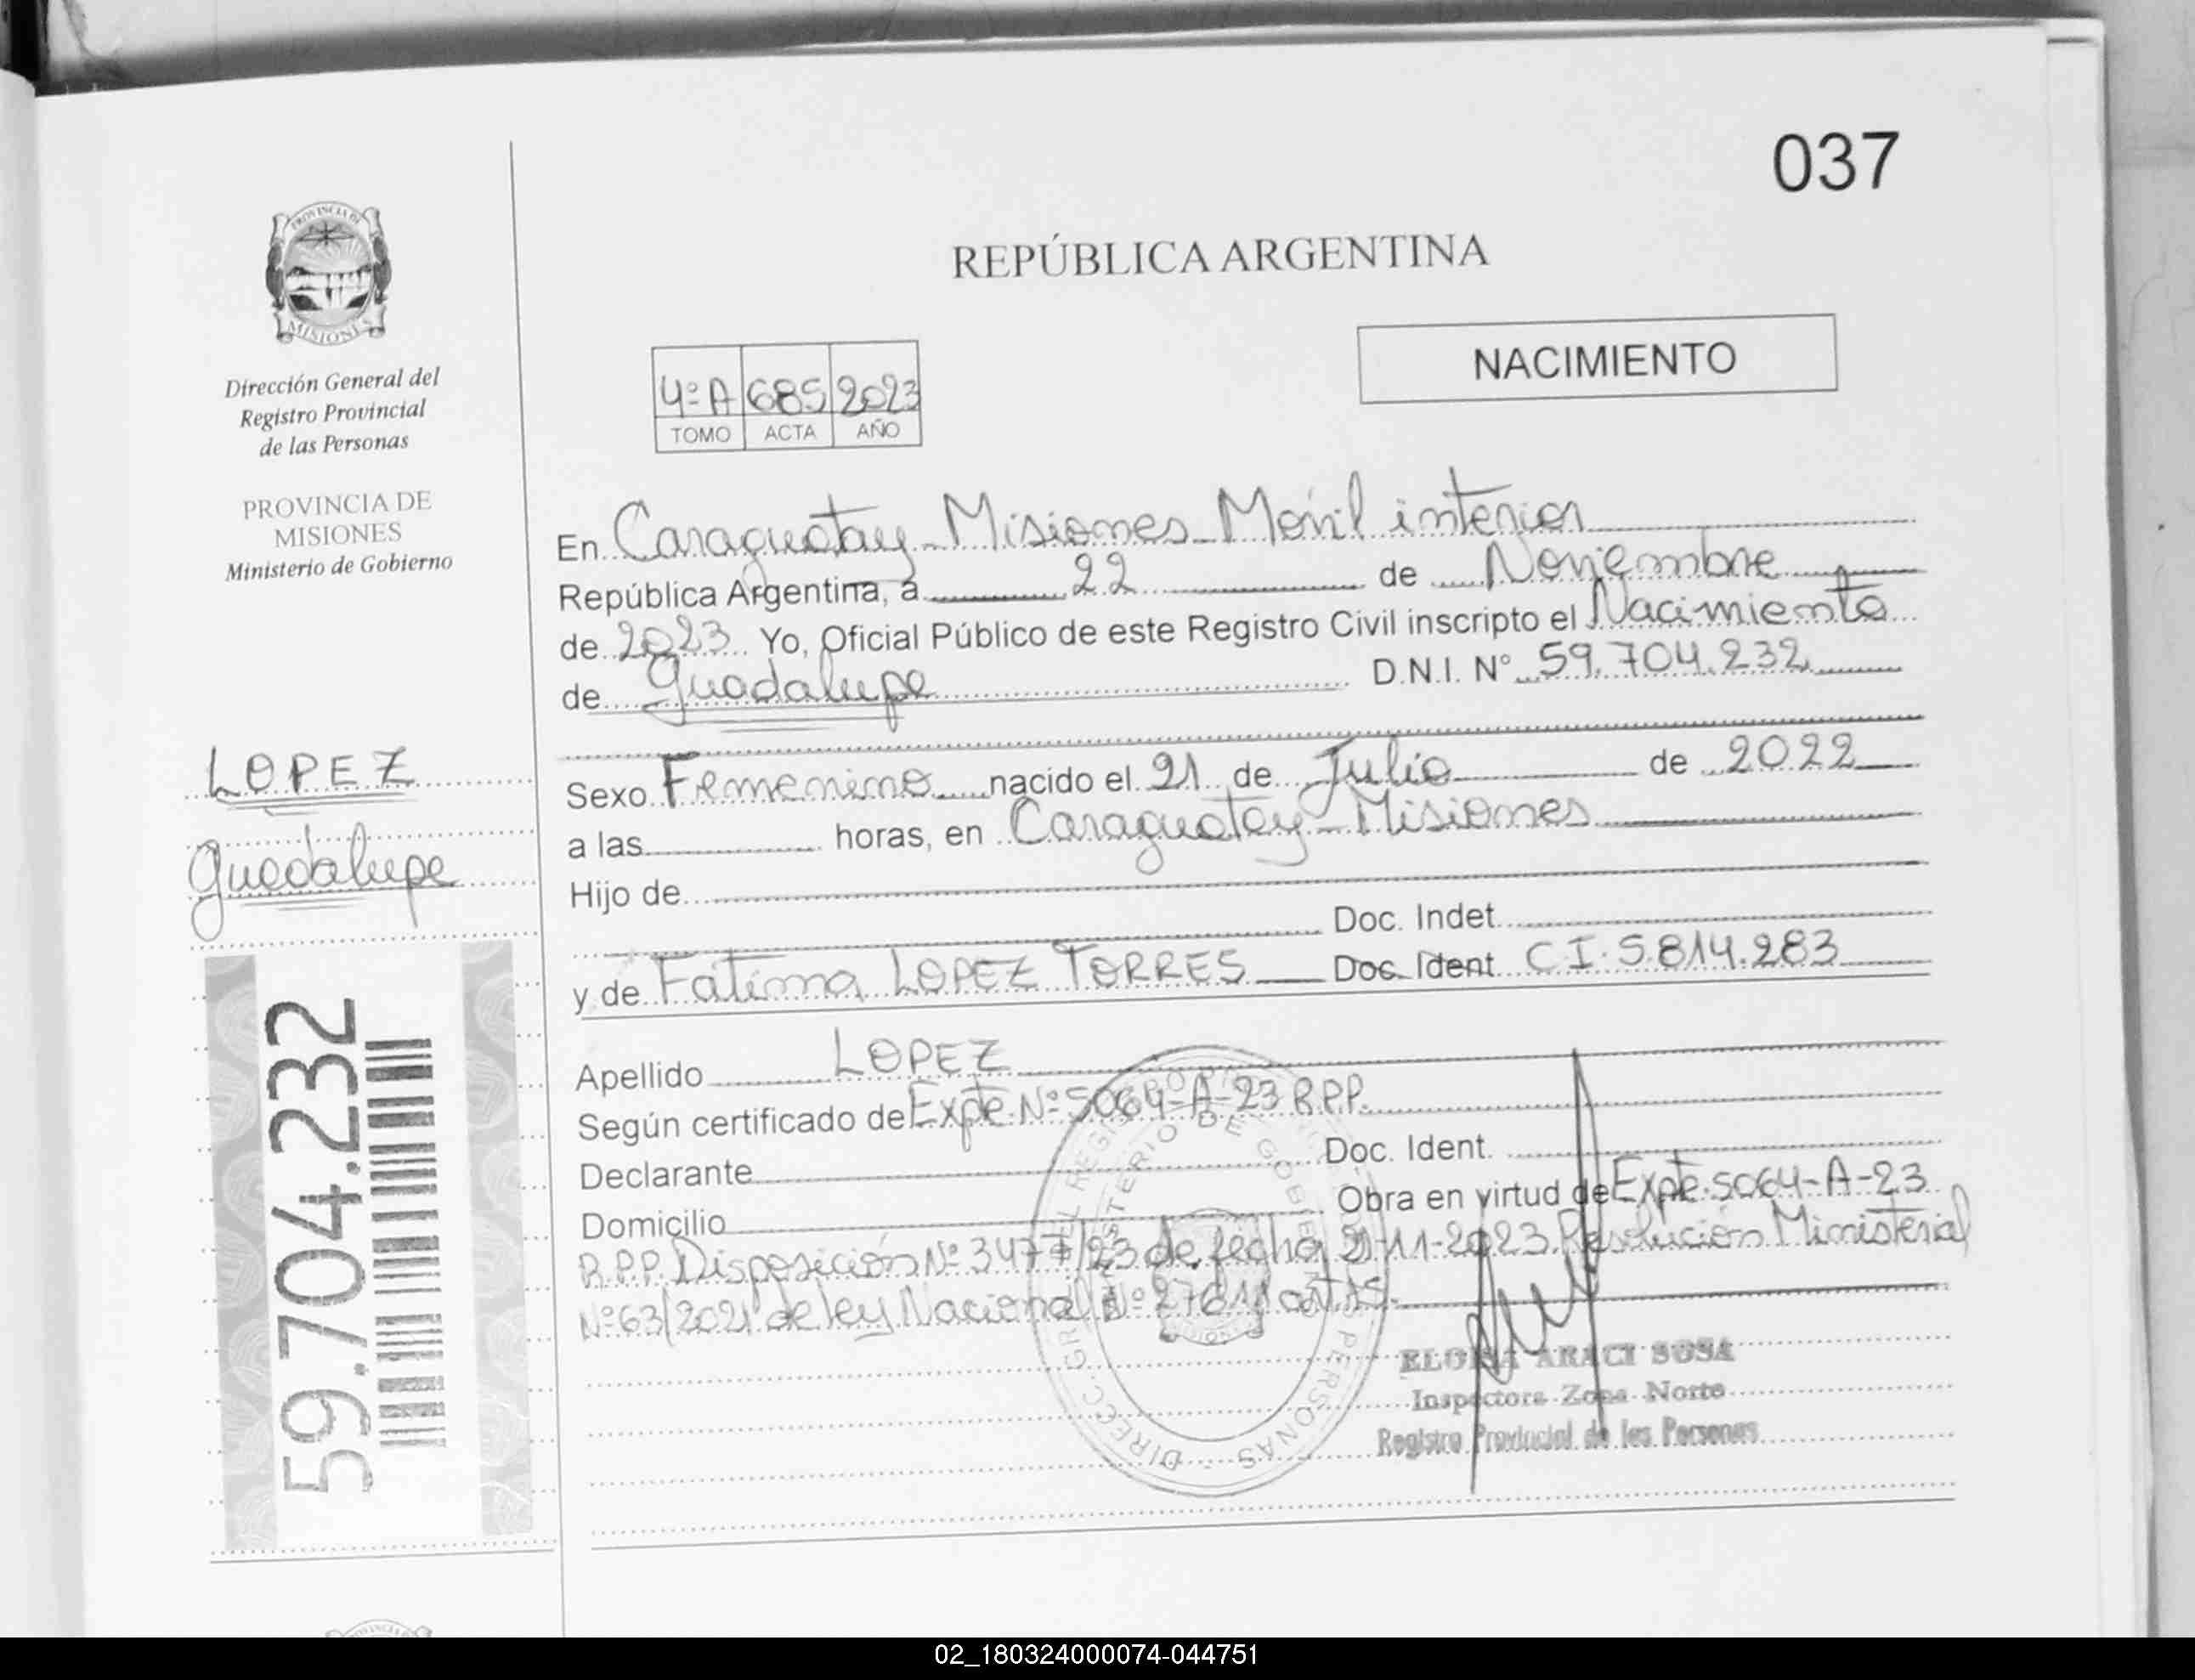 037
PROVINCIA DE
MISIONES
Dirección General del
Registro Provincial
de las Personas
PROVINCIA DE
MISIONES
Ministerio de Gobierno
LOPEZ
Guadalupe
59.704.232
REPÚBLICA ARGENTINA
NACIMIENTO
4º A 685 2023
TOMO ACTA AÑO
En Caraguatay - Misiones - Movil interior
República Argentina, a 22 de Noviembre
de 2023 Yo, Oficial Público de este Registro Civil inscripto el Nacimiento
de Guadalupe D.N.I. N° 59.704.232
Sexo Femenino nacido el 21 de Julio de 2022
a las horas, en Caraguatay - Misiones
Hijo de
Doc. Indet.
y de Fatima LOPEZ TORRES Doc. Ident. C I. 5.814.283
Apellido LOPEZ
Según certificado de Expte. Nº 5064-A-23 R.P.P.
Declarante Doc. Ident.
Domicilio Obra en virtud de Expte. 5064-A-23
R.P.P. Disposición Nº 3477/23 de fecha 21-11-2023. Resolución Ministerial
Nº 63/2021 de ley Nacional Nº 27611
DIRECC. GRAL. DEL REGISTRO PROVINCIAL DE LAS PERSONAS
MINISTERIO DE GOBIERNO
MISIONES
ELOISA ARACI SOSA
Inspectora Zona Norte
Registro Provincial de las Personas
02_180324000074-044751